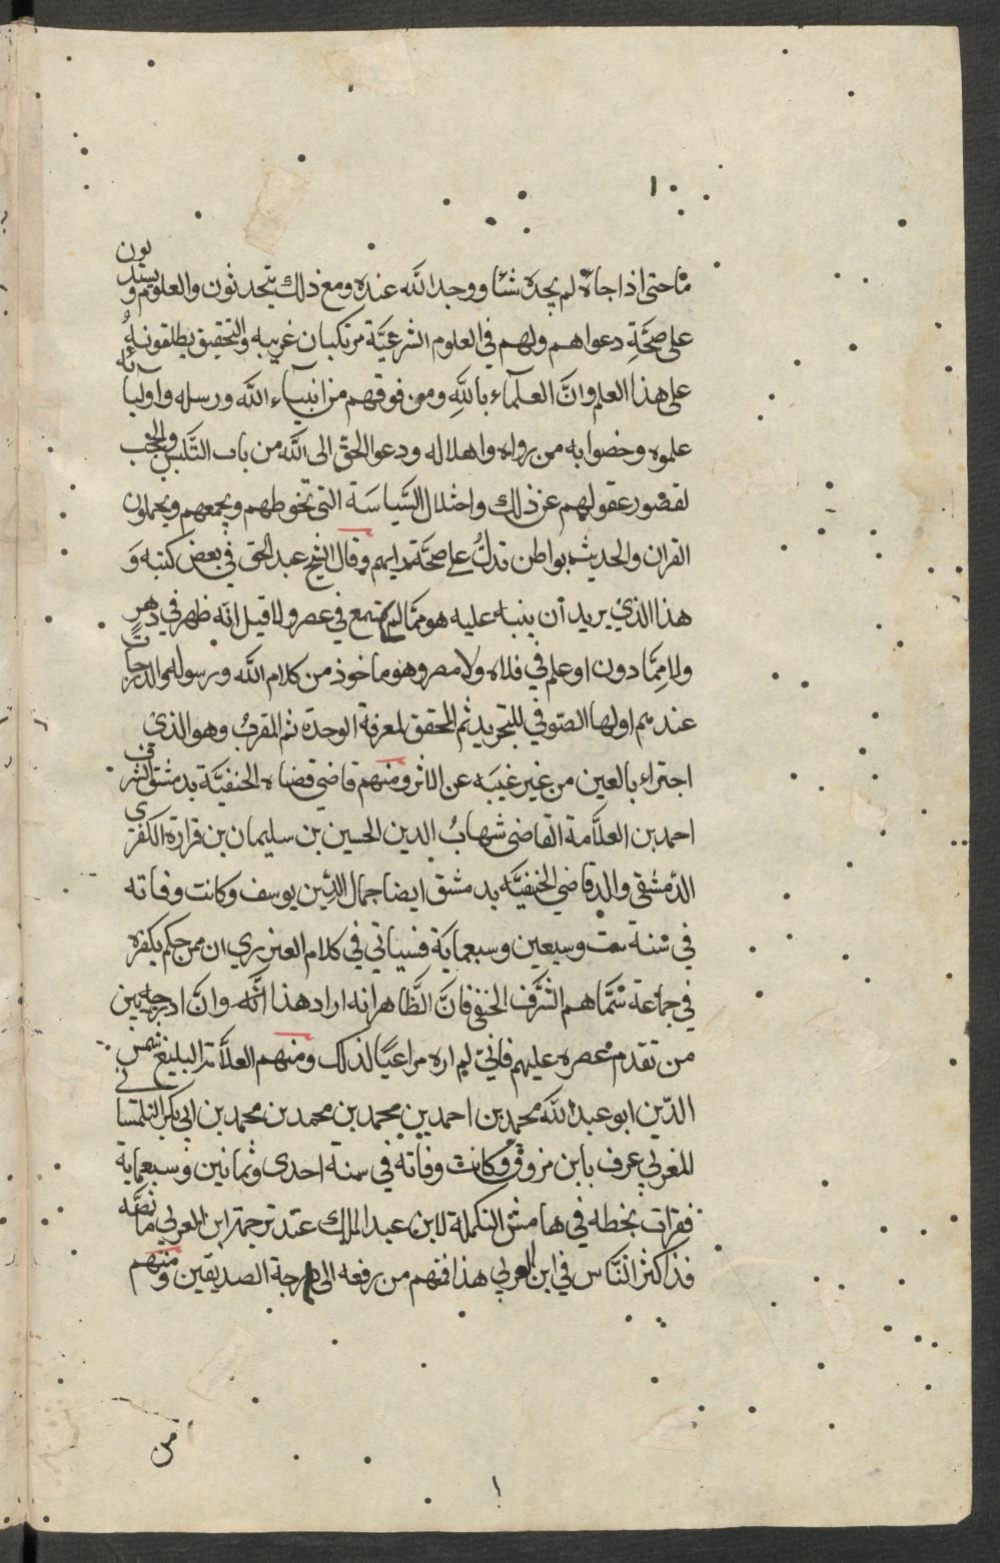 ١
ماحتى اذا جاه لم يجده شئا ووجد الله عنده ومع ذلك يتحدثون والعلوم ويستدلون
على صحَّةِ دعواهم ولهم في العلوم الشرعيَّة مرتكبان غريبه والتحقيق يطلقونه
على هذا العلم وانَّ العلمآء باللهِ ومن فوقهم من انبيآء الله ورسله واوليآئه
علموه وخصوا به من رواه واهلا له ودعوا الحق الى الله من باب التَّلبس والحجب
لقصور عقولهم عن ذلك واختلال السِّياسَة التى تحوطهم وتجمعهم ويحملون
القران والحديث بواطن تدلُّ على صحَّة رايهم وقال الشيخ عبد الحق في بعض كتبه وَ
هذا الذي يريد أن ينبه عليه هو ممَّا لم يسمع في عصر ولا قيل انه ظهر في دهر
ولا مِمَّا دون او علم في فلاه ولا مصر وهو ماخوذ من كلام الله ورسوله والدرجات
عندهم اولها الصّوفي للتجريد ثم المحقق لمعرفة الوحدة ثم المقربُ وهو الذى
اجتراء بالعين من غير غيبَه عن الاثر ومنهم قاضي قضاه الحنفيَّة بدمشق الشرف
احمد بن العلاَّمة القاضي شهابُ الدين الحسين بن سليمان بن قزارة الكفري
الدّمشقى والد قاضي الحنفيَّه بدمشق ايضا جمال الدِّين يوسف وكانت وفاته
في سنة ست وسبعين وسبعماية فسياتي في كلام العيزري ان ممن حكم بكفره
في جماعة سَمَّاهم الشَّرَف الحنفي فانَّ الظَّاهر انه اراد هذا انَّه وانَّ ادرجه بين
من تقدم عصره عليهم فانيّ لم اره مراعيًا لذلك ومنهم العلاَّمة البليغ شمس
الدّين ابو عبد الله محمد بن احمد بن محمد بن محمد بن محمد بن ابى بكر التلمسانى
المغربي عرف بابن مزوق وكانت وفاته في سنة احدى وثمانين وسبعماية
فقرات بخطه في هامش التكملة لابن عبد الملك عند ترجمة ابن العربي ما نصَّه
قد اكثر النَّاس في ابن العربي هذا فمنهم من رفعه الى درجة الصديقين ومنهم
من
١